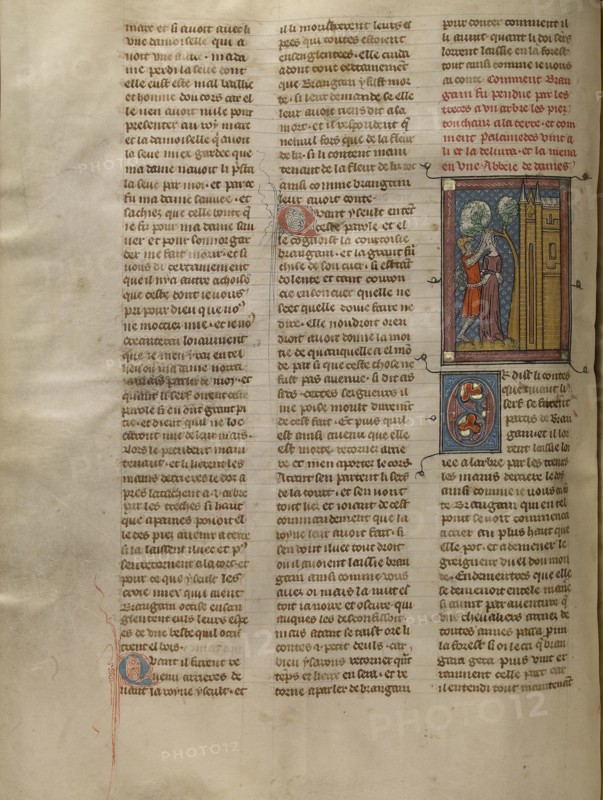 marc et si avoit avec li
une damoiselle qui a
voit une autre. ma da
me perdi la seue dont
elle eust esté mal baillie
et honnie dou cors car el
le nen avoit nule pour
presenter au roy marc
et la damoiselle qavoit
la seue miex gardee que
ma dame navoit li presta
la seue par moi. et par ce
fu ma dame sauvee. et
sachiez que celle bonte q
ne fu pour ma dame sau
ver et pour son
der me fait morir. et si
vous di certainement
que il ny a autre achoison
que ceste dont ie vous
pri pour dieu que no
ne mociez mie. et ie vo
creanterai loiaument
que ie men yrai en tel
lieu ou ia mais norrai
parler de moy. et
quant li serf oirent ceste
parole si en ont grant pi
tie. et dient quil ne loc
cirront mie
lors le prendent main
tenant. et li lierent les
mains derrieres le dos a
pres latachent a .i. arbre
par les treches si haut
que a paines pooit el
le des piez avenir a terre
si la laissent illuec et
sen retornent a la cort. et
pour ce que yseult les
croie miex quil aient
Brangain occise ensan
glentent euls leurs espe
es de une beste quil occis
trent el bois.
Quant il furent re
venu arrieres de
vant la royne yseult. et
il li moustrerent leurs es
pees qui toutes estoient
ensenglentees. elle cuida
adont tout certainement
que Brangain y fust mor
te. si leur demande se elle
leur avoit riens dit a sa
mort. et il respondent q
nenuil fors que de la fleur
de lis. si li content main
tenant de la fleur de lis tot
ainsi comme brangain
leur avoit conte.
Quant yseult entent
ceste parole et el
le cognoist la courtoisie
brangain. et la grant fran
chise de son cuer. si est tant
dolente et tant courou
cie en son cuer quelle ne
scet quelle doie faire ne
dire. elle voudroit oren
droit avoir donne la moi
tie de quanquelle a el mon
de par si que ceste chose ne
fust pas avenue. si dit as
sers. certes seigneurs il
me poise moult durement
de cest fait. Et puis quil
est ainsi avenu que elle
est morte. retornez arrie
re et men aportez le cors.
Atant sen partent li sers
de la court. et sen vont
tout lie et ioiant de cest
commandement que la
royne leur avoit fait. si
sen vont illuec tout droit
ou il avoient laissie bran
gain ainsi comme vous
avez oi mais la nuit es
toit ia noire et oscure. qui
auques les desconfissoit.
mais atant se taist ore li
contes .i. petit deuls. car
bien y savrons retorner quant
teps et lieux en sera. et re
torne a parler de brangain
pour conter comment il
li avint quant li doi sers
lorrent laissie en la forest
tout ainsi comme ie vous
ai conte. Comment Bran
gain fu pendue par les
treces a un arbre les piez
touchans a la terre. et com
ment Palamedes vint a
li et la delivra. et la mena
en une Abbeie de dames.
Or dist li contes
que quant li
serf se furent
partis de Bran
gain et il lor
rent laissie loi
iee a larbre par les treces
les mains derriere le dos
ainsi comme ie vous ai
te Brangain qui en tel
point se voit commenca
a crier au plus haut que
elle pot. et a demener le
greigneur duel dou mon
de. Endementres que elle
se demenoit en tele manie
re si avint par aventure q
uns chevaliers armez de
toutes armes passa parmi
la forest. si oi le cri q bran
gain geta. puis vint er
raument celle part car
il entendi tout maintenant